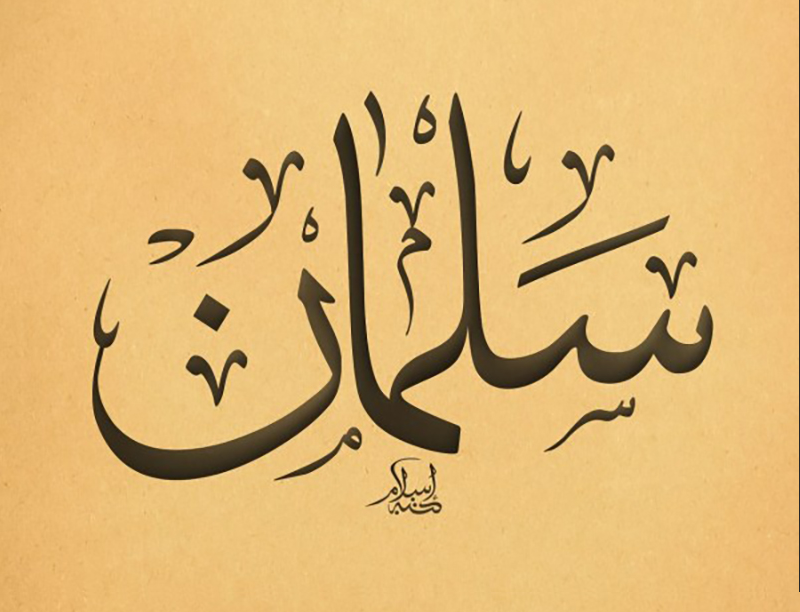 سَلْمَان
كتبه إسلام